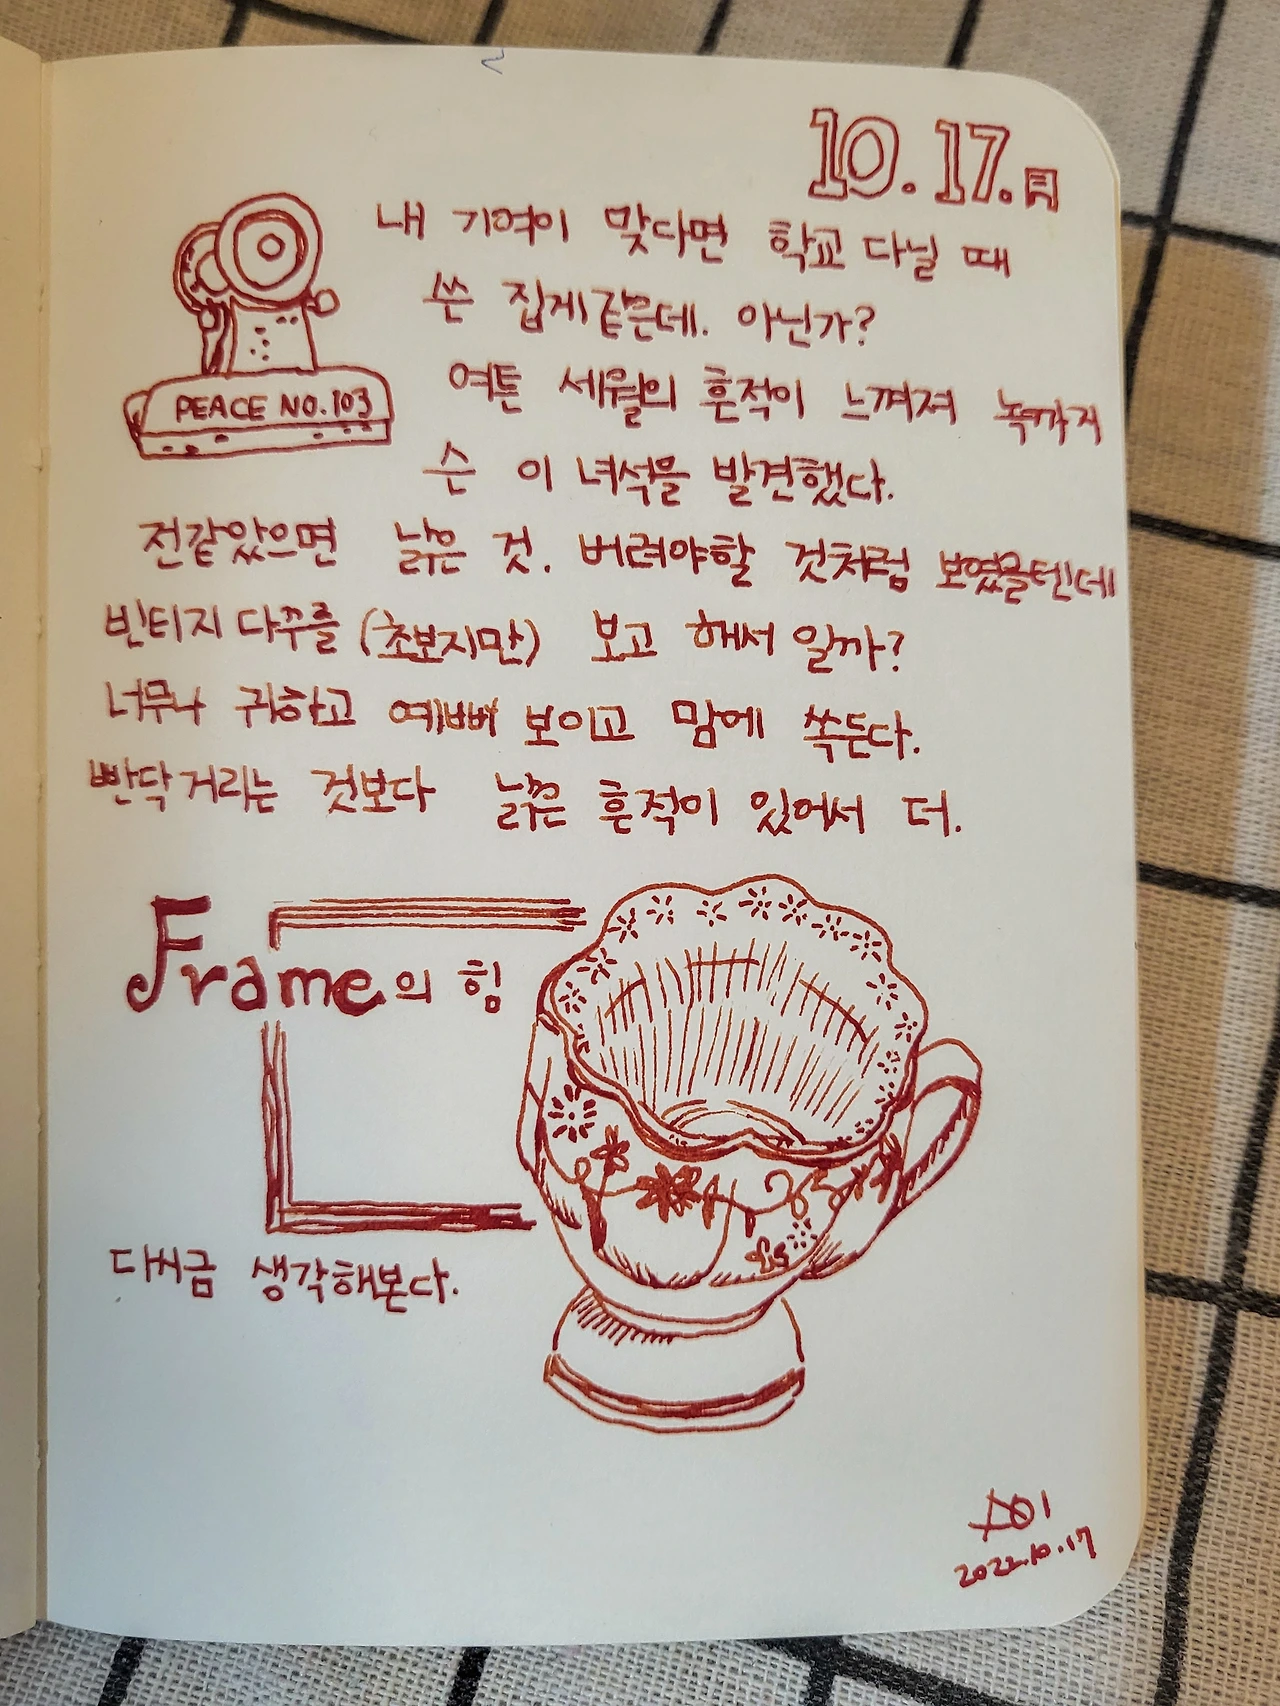 10.17.月
내 기억이 맞다면 학교 다닐 때
쓴 집게같은데. 아닌가?
PEACE NO.103
여튼 세월의 흔적이 느껴져 녹까지
슨 이 녀석을 발견했다.
전같았으면 낡은 것. 버려야할 것처럼 보였을텐데
빈티지 다꾸를 (초보지만) 보고 해서 일까?
너무나 귀하고 예뻐 보이고 맘에 쏙든다.
빤닥거리는 것보다 낡은 흔적이 있어서 더.
Frame의 힘
다시금 생각해본다.
2022.10.17